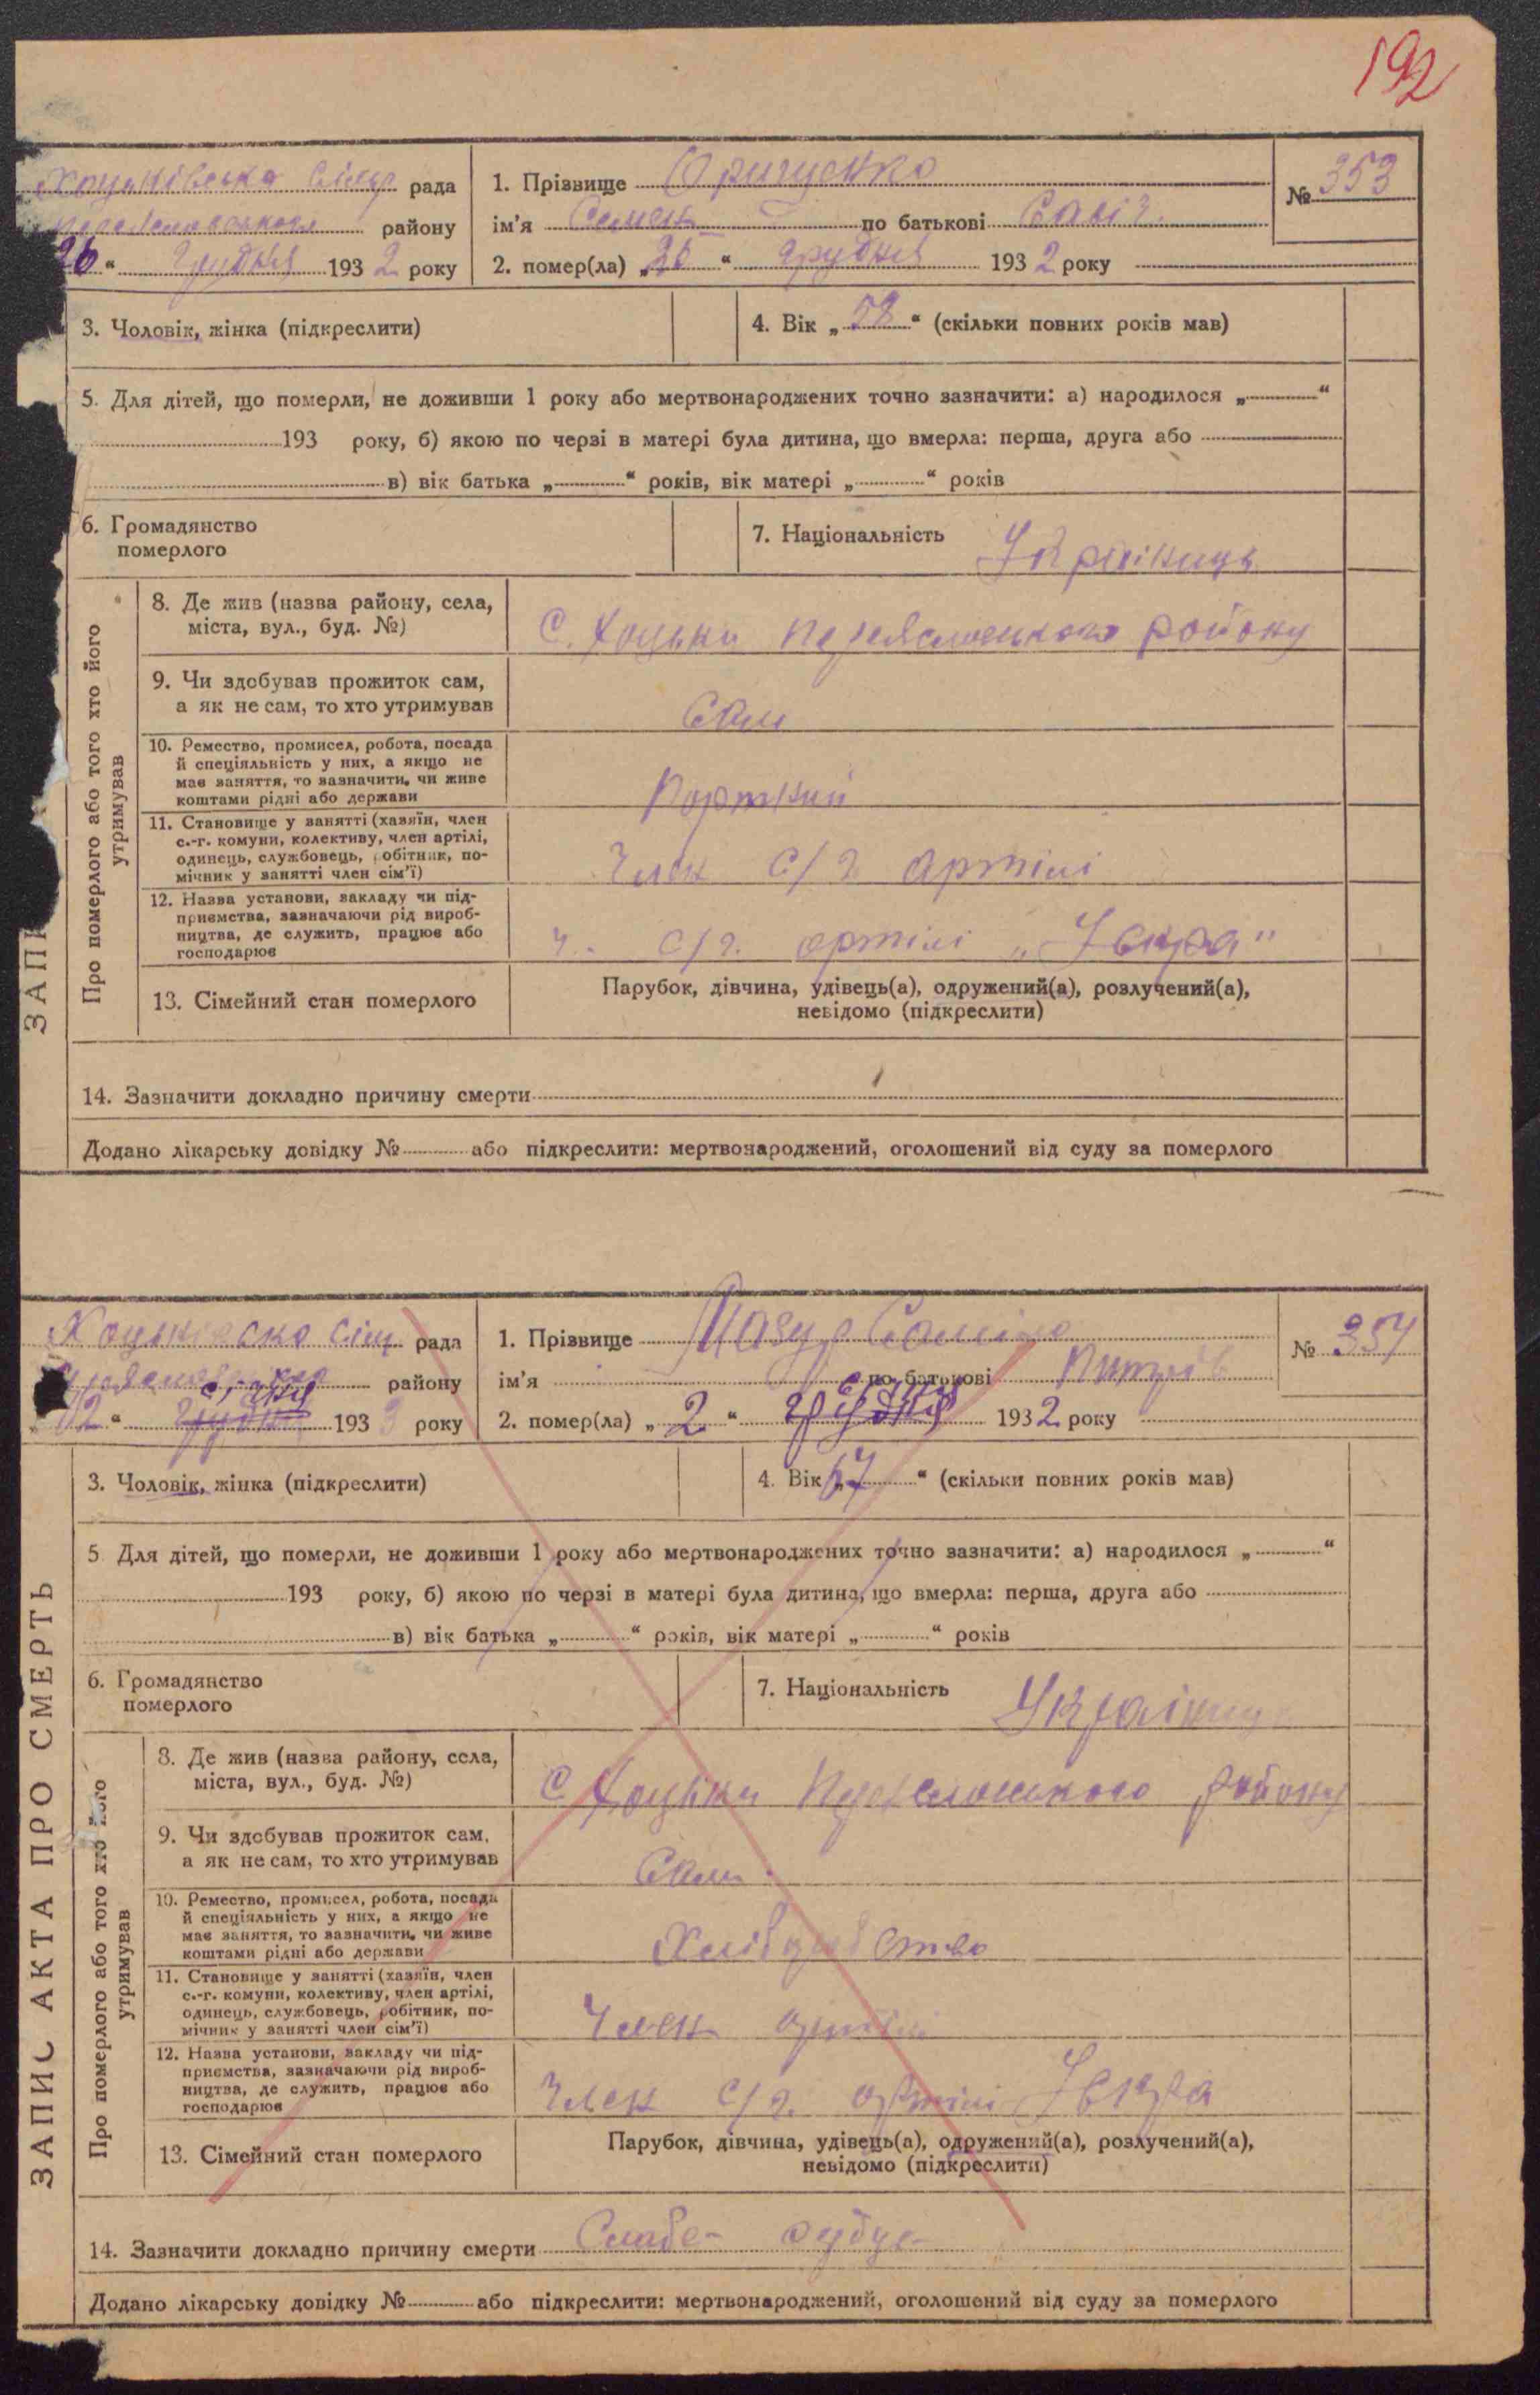 192
Хоцьківська сільр рада
Переяславського району
26 “ грудня 1932 року
1. Прізвище
№ 353
ім’я Семен по батькові
2. помер(ла) „26 “ грудня 1932 року
3. Чоловік, жінка (підкреслити)
4. Вік „58“ (скільки повних років мав)
5. Для дітей, що померли, не доживши 1 року або мертвонароджених точно зазначити: а) народилося „ “
193 року, б) якою по черзі в матері була дитина, що вмерла: перша, друга або
в) вік батька „ “ років, вік матері „ “ років
6. Громадянство
померлого
7. Національність Українець
ЗАПИ
Про померлого або того хто його
утримував
8. Де жив (назва району, села,
міста, вул., буд. №)
С. Хоцьки Переяславського району
9. Чи здобував прожиток сам,
а як не сам, то хто утримував
Сам
10. Ремество, промисел, робота, посада
й спеціяльність у них, а якщо не
має заняття, то зазначити, чи живе
коштами рідні або держави
Портний
11. Становище у занятті (хазяїн, член
с.-г. комуни, колективу, член артілі,
одинець, службовець, робітник, по-
мічник у занятті член сім’ї)
Член с/г артілі
12. Назва установи, закладу чи під-
приємства, зазначаючи рід вироб-
ництва, де служить, працює або
господарює
ч. с/г. артілі „Іскра“
13. Сімейний стан померлого
Парубок, дівчина, удівець(а), одружений(а), розлучений(а),
невідомо (підкреслити)
14. Зазначити докладно причину смерти
Додано лікарську довідку № або підкреслити: мертвонароджений, оголошений від суду за померлого
Хоцьківска сіль рада
району
“ 193 року
1. Прізвище Мазур
№ 354
ім’я по батькові
2. помер(ла) „2 “ 1932 року
3. Чоловік, жінка (підкреслити)
4. Вік „67“ (скільки повних років мав)
5 Для дітей, що померли, не доживши 1 року або мертвонароджених точно зазначити: а) народилося „ “
193 року, б) якою по черзі в матері була дитина, що вмерла: перша, друга або
в) вік батька „ “ років, вік матері „ “ років
6. Громадянство
померлого
7. Національність Українець
ЗАПИС АКТА ПРО СМЕРТЬ
Про померлого або того хто його
утримував
8. Де жив (назва району, села,
міста, вул., буд. №)
С Хоцьки Переяславського району
9. Чи здобував прожиток сам,
а як не сам, то хто утримував
Сам
10. Ремество, промисел, робота, посада
й спеціяльність у них, а якщо не
має заняття, то зазначити, чи живе
коштами рідні або держави
Хліборобство
11. Становище у занятті (хазяїн, член
с.-г. комуни, колективу, член артілі,
одинець, службовець, робітник, по-
мічник у занятті член сім’ї)
Член артілі
12. Назва установи, закладу чи під-
приємства, зазначаючи рід вироб-
ництва, де служить, працює або
господарює
Член с/г. артілі Іскра
13. Сімейний стан померлого
Парубок, дівчина, удівець(а), одружений(а), розлучений(а),
невідомо (підкреслити)
14. Зазначити докладно причину смерти Слабе
Додано лікарську довідку № або підкреслити: мертвонароджений, оголошений від суду за померлого